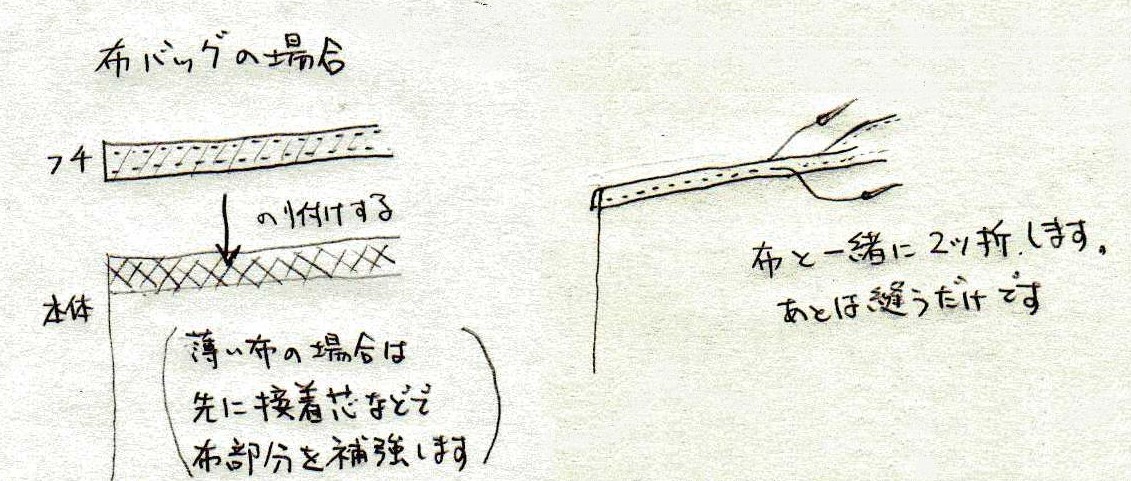 布バッグの場合
フチ
のり付けする
本体
(薄い布の場合は
先に接着芯などで
布部分を補強します)
布と一緒に2ツ折します。
あとは縫うだけです